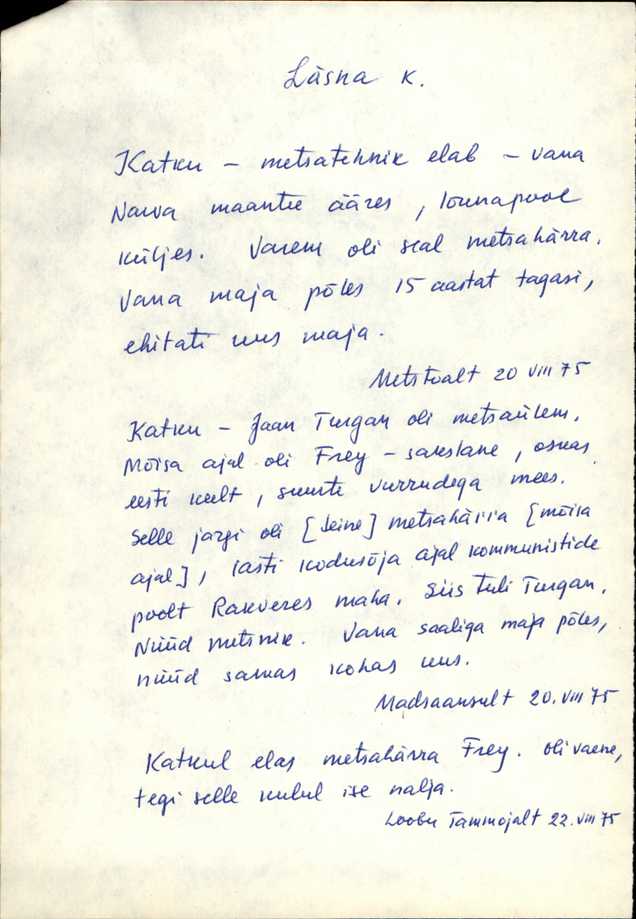 Läsna k.
Katku – metsatehnik elab – vana
Narva maantee ääres, lõunapool
küljes. Varem oli seal metsahärra.
Vana maja põles 15 aastat tagasi,
ehitati uus maja.
Metstoalt 20 VIII 75
Katku – Jaan Turgan oli metsaülem.
Mõisa ajal oli Frey – sakslane, oskas
eesti keelt, suurte vurrudega mees.
Selle järgi oli [teine] metsahärra [mõisa
ajal], lasti kodusõja ajal kommunistide
poolt Rakveres maha. Siis tuli Turgan.
Nüüd metsnik. Vana saaliga maja põles,
nüüd samas kohas uus.
Madsaansult 20. VIII 75
Katkul elas metsahärra Frey. Oli vaene,
tegi selle kulul ise nalja.
Loobu Tammojalt 22. VIII 75